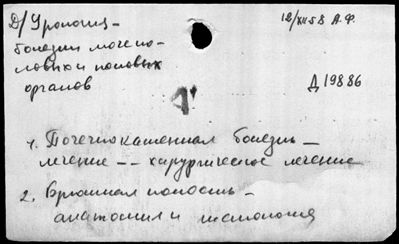 Д/ Урология –
болезни мочепо-
ловых и половых
органов
12/XII 58 А.Ф.
Д 19886
1. Почечнокаменная болезнь –
лечение –– хирургическое лечение
2. Брюшная полость –
анатомия и